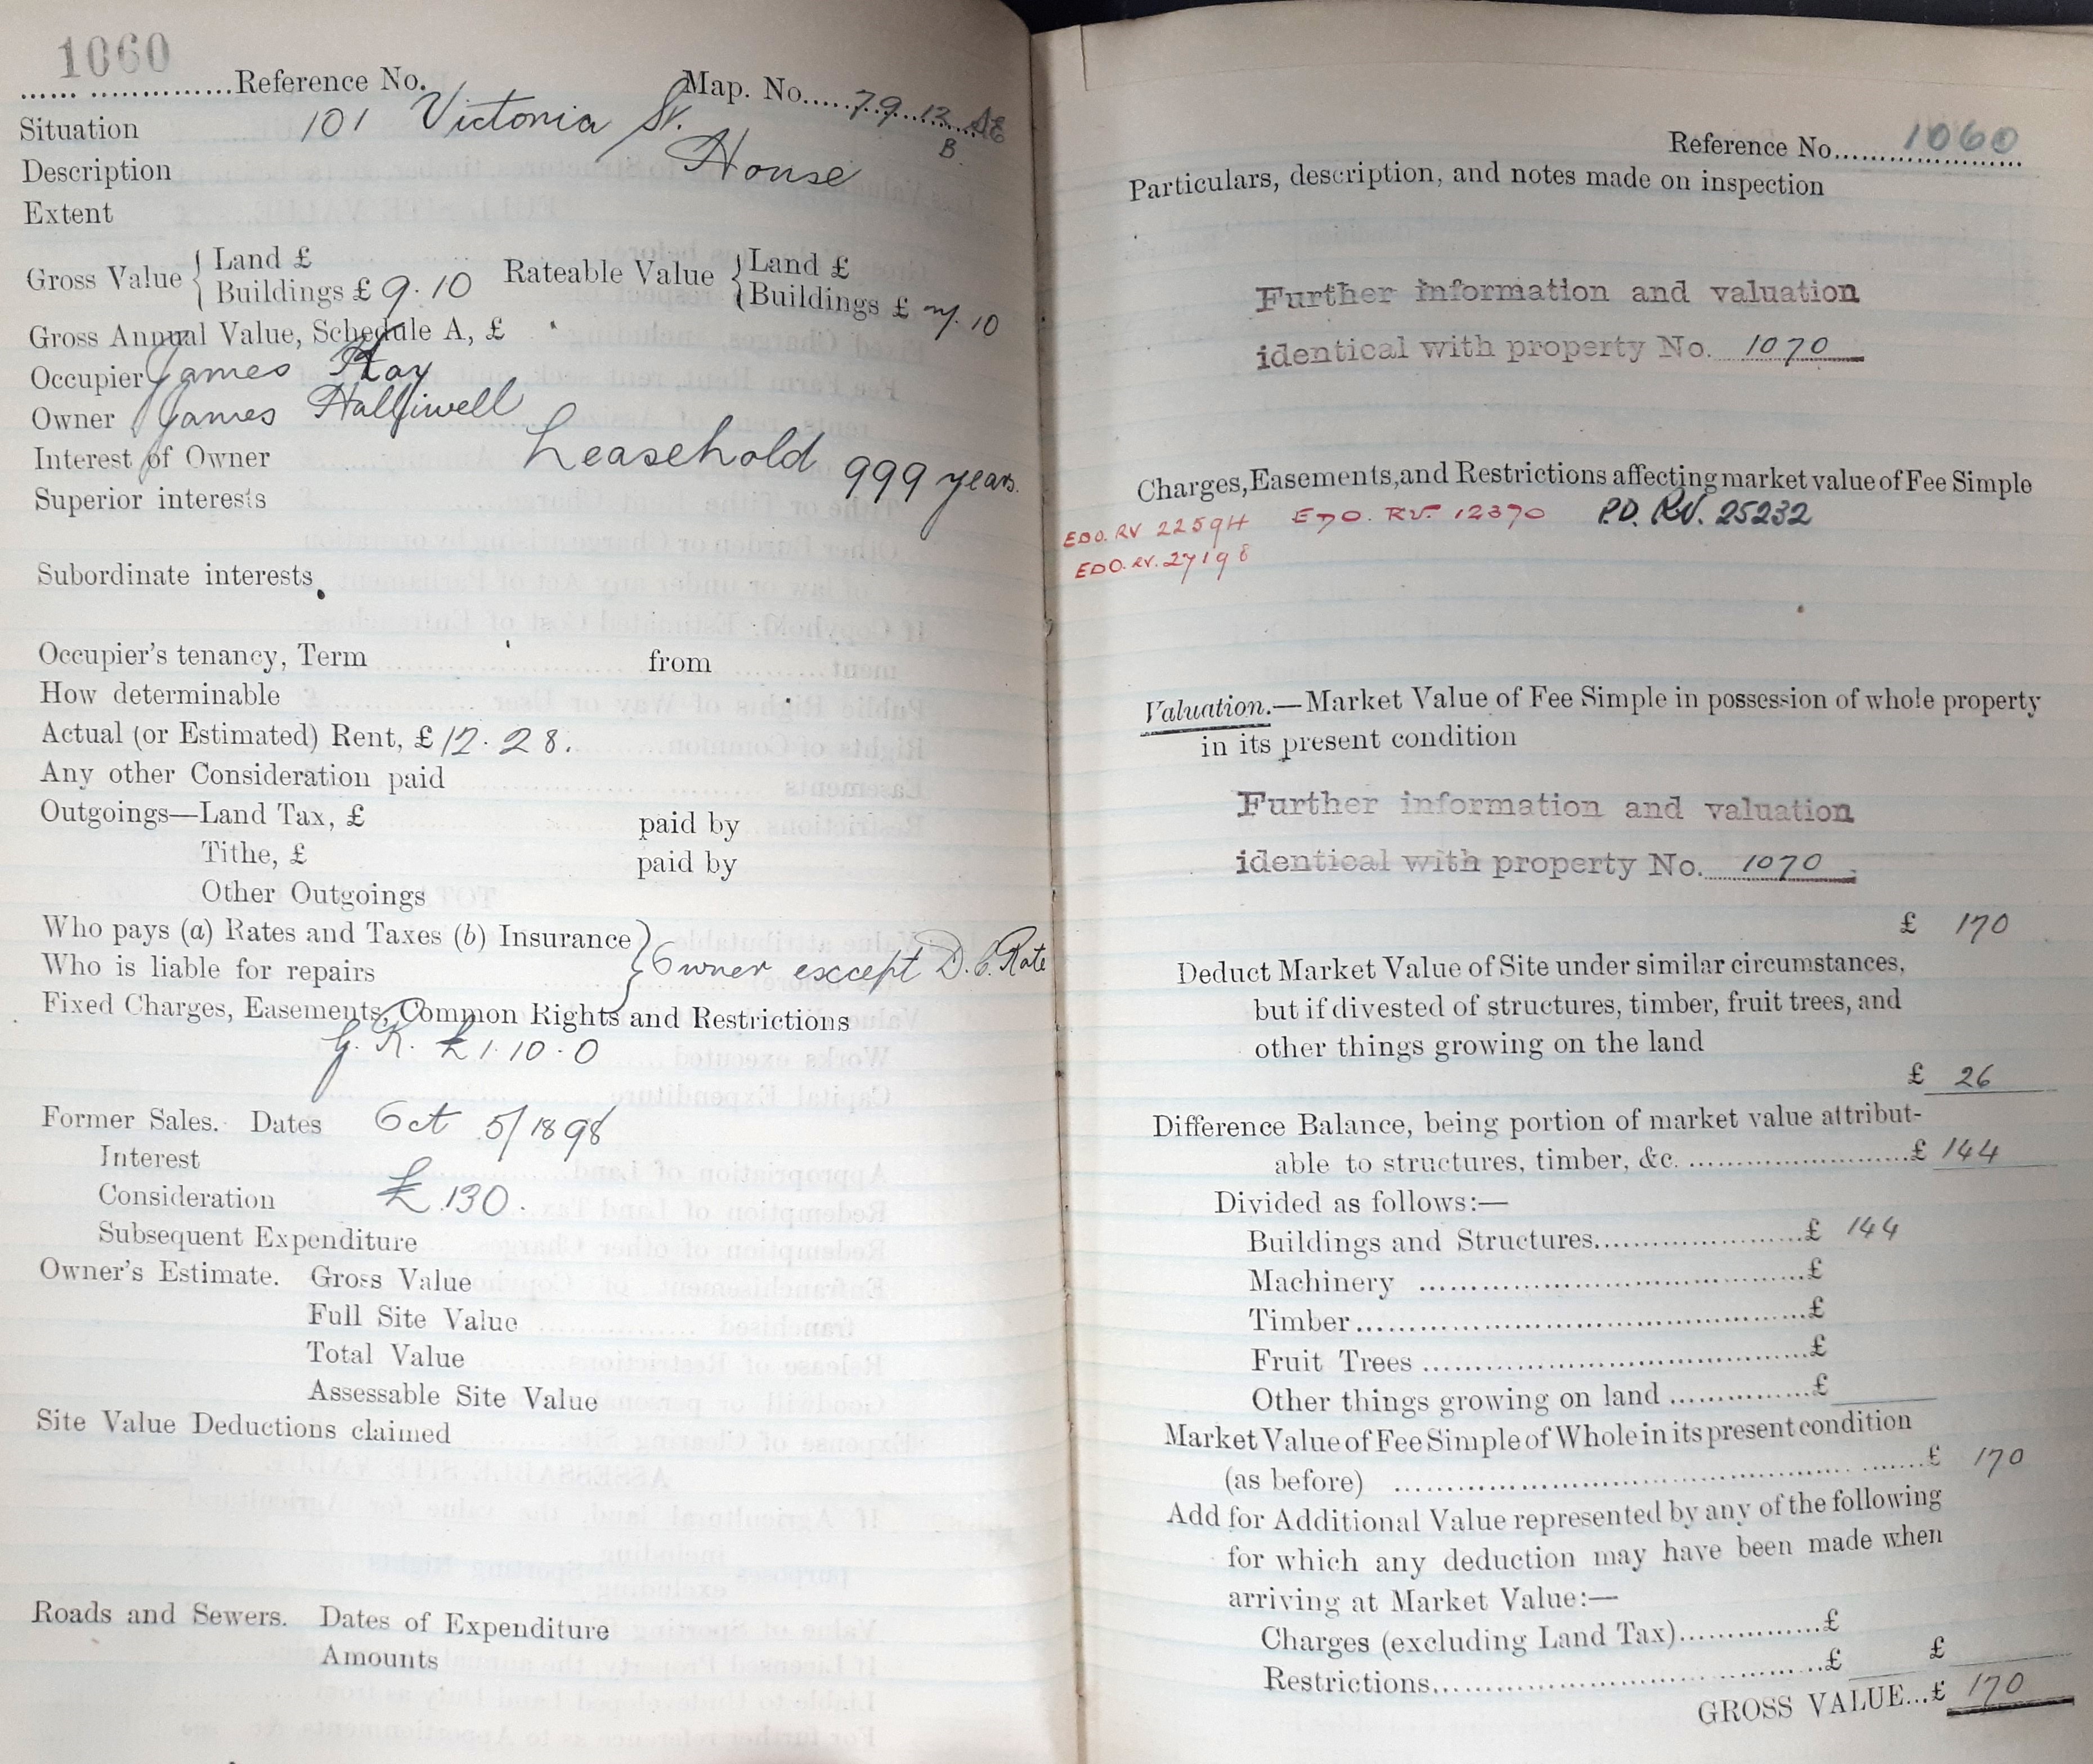 1060
Reference No. Map. No. 79.12 SE
B.
Situation 101 Victoria St.
Description House
Extent
Gross Value { Land £
Buildings £ 9.10
Rateable Value { Land £
Buildings £ 7.10
Gross Annual Value, Schedule A, £
Occupier James Kay
Owner James Halliwell
Interest of Owner Leasehold 999 years.
Superior interests
Subordinate interests
Occupier's tenancy, Term from
How determinable
Actual (or Estimated) Rent, £ 12.28.
Any other Consideration paid
Outgoings—Land Tax, £ paid by
Tithe, £ paid by
Other Outgoings
Who pays (a) Rates and Taxes (b) Insurance }
Who is liable for repairs } Owner except D.C. Rate
Fixed Charges, Easements, Common Rights and Restrictions
G. R. £1.10.0
Former Sales. Dates Oct 5/1898
Interest
Consideration £130.
Subsequent Expenditure
Owner's Estimate. Gross Value
Full Site Value
Total Value
Assessable Site Value
Site Value Deductions claimed
Roads and Sewers. Dates of Expenditure
Amounts
Reference No. 1060
Particulars, description, and notes made on inspection
Further information and valuation
identical with property No. 1070
Charges, Easements, and Restrictions affecting market value of Fee Simple
EDO. RV 22594 EDO. RV. 12370 P.D. RV. 25232
EDO. RV. 27198
Valuation.—Market Value of Fee Simple in possession of whole property
in its present condition
Further information and valuation
identical with property No. 1070
£ 170
Deduct Market Value of Site under similar circumstances,
but if divested of structures, timber, fruit trees, and
other things growing on the land
£ 26
Difference Balance, being portion of market value attribut-
able to structures, timber, &c. £ 144
Divided as follows:—
Buildings and Structures £ 144
Machinery £
Timber £
Fruit Trees £
Other things growing on land £
Market Value of Fee Simple of Whole in its present condition
(as before) £ 170
Add for Additional Value represented by any of the following
for which any deduction may have been made when
arriving at Market Value:—
Charges (excluding Land Tax) £
Restrictions £ £
GROSS VALUE...£ 170